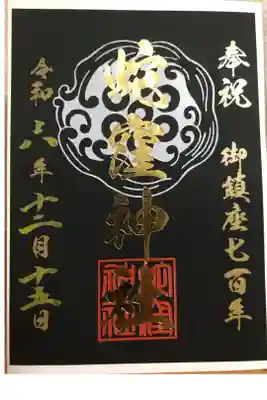 奉祝 御鎮座七百年
蛇窪神社
令和六年十二月十五日